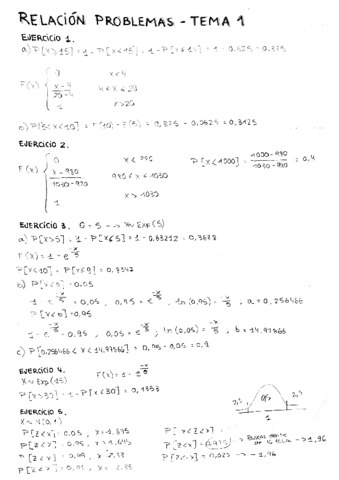 RELACIÓN PROBLEMAS - TEMA 1
EJERCICIO 1.
a) P[X>15] = 1 - P[X<15] = 1 - P[X≤15] = 1 - 0,625 = 0,375
0 x<4
F(x) { x-4 / 20-4 4≤x≤20
1 x>20
b) P[5<X<10] = F(10) - F(5) = 0,375 - 0,0625 = 0,3125
EJERCICIO 2.
0 x<980
F(x) { x-980 / 1030-980 980≤x≤1030
1 x>1030
P[X<1000] = 1000-980 / 1030-980 = 0,4
EJERCICIO 3. θ=5 → X~Exp(5)
a) P[X>5] = 1 - P[X≤5] = 1 - 0,63212 = 0,3678
F(x) = 1 - e^(-x/5)
P[X<10] = P[X≤9] = 0,8347
b) P[X<a] = 0.05
1 - e^(-x/5) = 0,05 , 0,95 = e^(-x/5) , ln(0,95) = -x/5 , a = 0,256466
P[X<b] = 0,95
1 - e^(-x/5) = 0.95 , 0,05 = e^(-x/5) ; ln(0,05) = -x/5 , b = 14,97866
c) P[0,256466 < X < 14,97866] = 0,95 - 0,05 = 0,9
EJERCICIO 4. F(x) = 1 - e^(-x/15)
X~Exp(15)
P[X>30] = 1 - P[X≤30] = 0,1353
EJERCICIO 5.
X~N(0,1)
P[Z<x] = 0.05 , x = -1,645
P[Z<x] = 0.95 , x = 1,645
P[Z<x] = 0.99 , x = 2,33
P[Z<x] = 0,01 , x = -2.33
P[Z<x] = 0,975 → Buscar dentro de la tabla → 1,96
P[Z<x] = 0,025 → -1,96